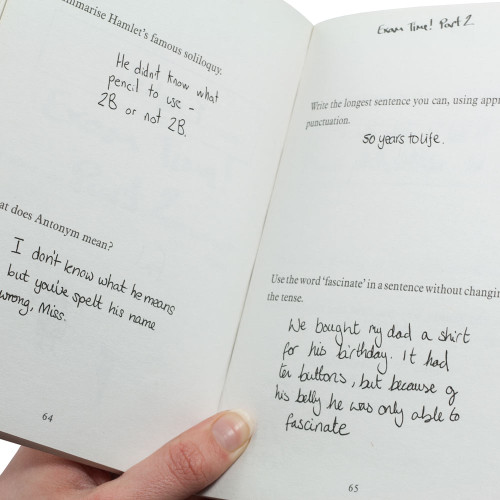 mmarise Hamlet's famous soliloquy.
He didn't know what
pencil to use -
2B or not 2B.
at does Antonym mean?
I don't know what he means
but you've spelt his name
wrong, Miss.
64
Exam Time! Part 2
Write the longest sentence you can, using appr
punctuation.
50 years to life.
Use the word 'fascinate' in a sentence without changin
the tense.
We bought my dad a shirt
for his birthday. It had
ten buttons, but because of
his belly he was only able to
fascinate
65